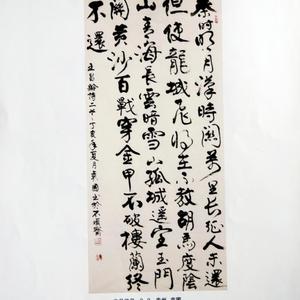 秦时明月漢時關萬里長征人未還
但使龍城飛將在不教胡馬度陰
山青海長雲暗雪山孤城遥望玉門
關黄沙百戰穿金甲不破樓蘭終
不還
王昌齡詩二首丁亥年夏月